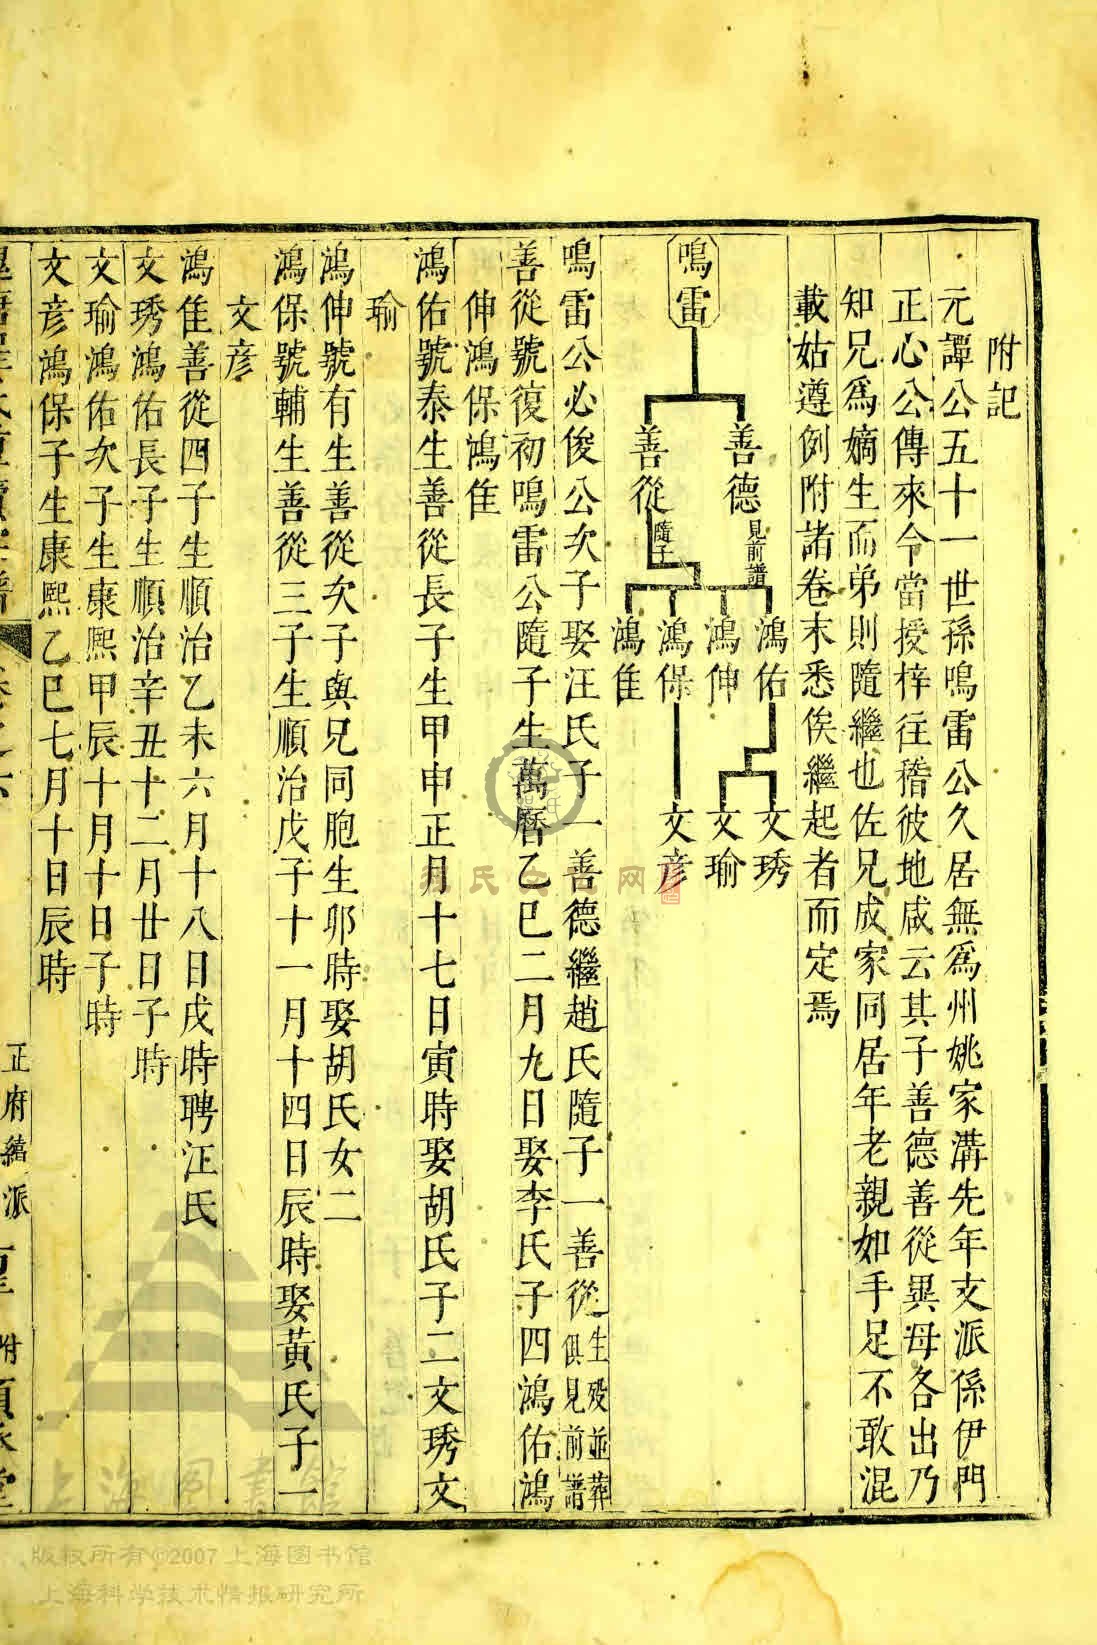 附記
元譚公五十一世孫鳴雷公久居無爲州姚家溝先年支派係伊門
正心公傳來今當授梓往稽彼地咸云其子善德善從異母各出乃
知兄爲嫡生而弟則隨繼也佐兄成家同居年老親如手足不敢混
載姑遵例附諸卷末悉俟繼起者而定焉
鳴雷
善德 見前譜
善從 隨子
鴻佑
鴻伸
鴻保
鴻隹
文琇
文瑜
文彥
鳴雷公必俊公次子娶汪氏子一善德繼趙氏隨子一善從生歿並葬俱見前譜
善從號復初鳴雷公隨子生萬曆乙巳二月九日娶李氏子四鴻佑鴻
伸鴻保鴻隹
鴻佑號泰生善從長子生甲申正月十七日寅時娶胡氏子二文琇文
瑜
鴻伸號有生善從次子與兄同胞生卯時娶胡氏女二
鴻保號輔生善從三子生順治戊子十一月十四日辰時娶黃氏子一
文彥
鴻隹善從四子生順治乙未六月十八日戌時聘汪氏
文琇鴻佑長子生順治辛丑十二月廿日子時
文瑜鴻佑次子生康熙甲辰十月十日子時
文彥鴻保子生康熙乙巳七月十日辰時
正府 派
附
上海图书馆
版权所有©2007上海图书馆
上海科学技术情报研究所